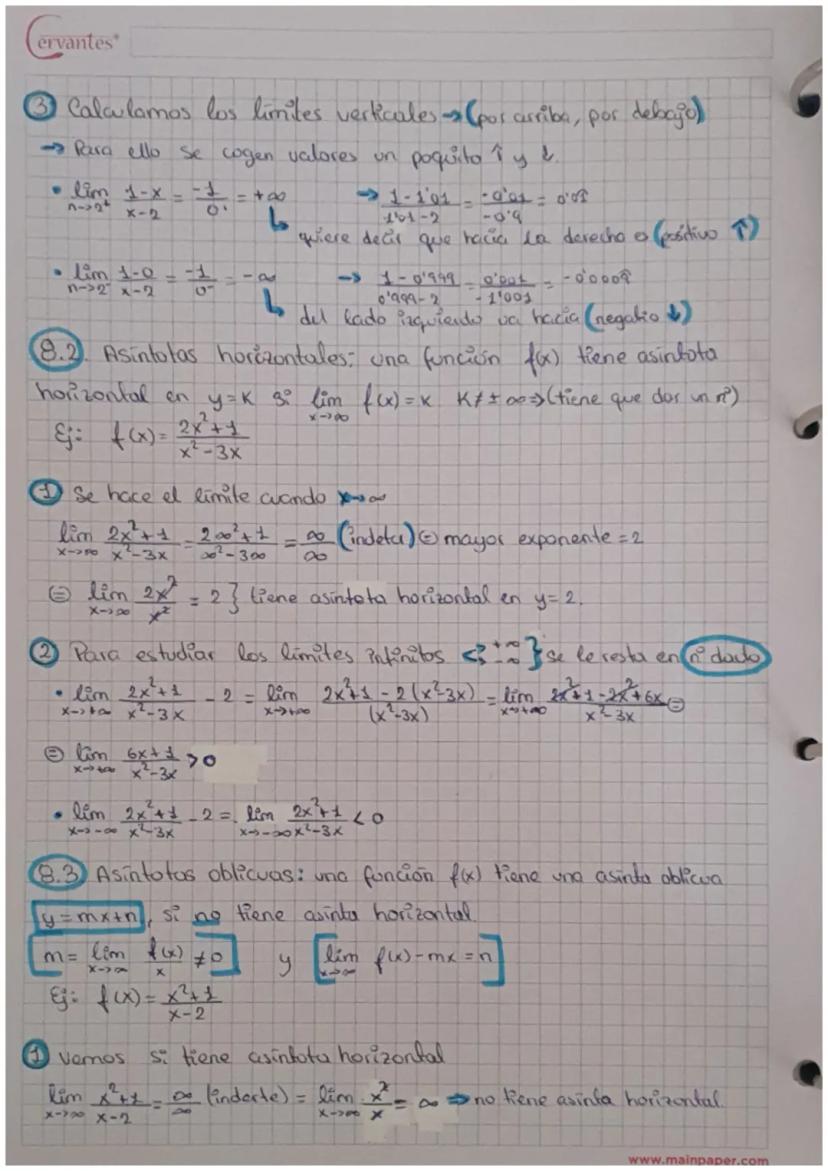 Cervantes
③ Calculamos los límites verticales → (por arriba, por debajo)
→ Para ello se cogen valores un poquito ↑ y ↓.
• lim n→2⁺ 1-x/x-2 = -1/0⁺ = +∞ → 1-1'01/1'01-2 = -0'01/-0'9 = 0'01
↳ quiere decir que hacia la derecha es (positivo ↑)
• lim n→2⁻ 1-0/x-2 = -1/0⁻ = -∞ → 1-0'999/0'999-2 = 0'001/-1'001 = -0'0009
↳ del lado izquierdo va hacia (negatio ↓)
8.2. Asíntotas horizontales: una función f(x) tiene asíntota
horizontal en y=K si lim x→∞ f(x)=K K≠±∞ ⇒ (tiene que dar un nº)
Ej: f(x) = 2x²+1/x²-3x
① Se hace el límite cuando x→∞
lim x→∞ 2x²+1/x²-3x = 2∞²+1/∞²-3∞ = ∞/∞ (indeter) ⊜ mayor exponente = 2
⊜ lim x→∞ 2x²/x² = 2 } tiene asíntota horizontal en y=2.
② Para estudiar los límites infinitos <{ +∞ -∞ } se le resta en nº dado
• lim x→+∞ 2x²+1/x²-3x - 2 = lim x→+∞ 2x²+1-2(x²-3x)/(x²-3x) = lim x→+∞ 2x²+1-2x²+6x/x²-3x ⊜
⊜ lim x→+∞ 6x+1/x²-3x > 0
• lim x→-∞ 2x²+1/x²-3x - 2 = lim x→-∞ 2x²+1/x²-3x < 0
8.3 Asíntotas oblicuas: una función f(x) tiene una asinta oblicua
y=mx+n, si no tiene asinta horizontal.
[m = lim x→∞ f(x)/x ≠ 0] y [lim x→∞ f(x)-mx = n]
Ej: f(x) = x²+1/x-2
① Vemos si tiene asíntota horizontal
lim x→∞ x²+1/x-2 = ∞/∞ (indeerte) = lim x→∞ x²/x = ∞ ⇒ no tiene asinta horizontal.
www.mainpaper.com